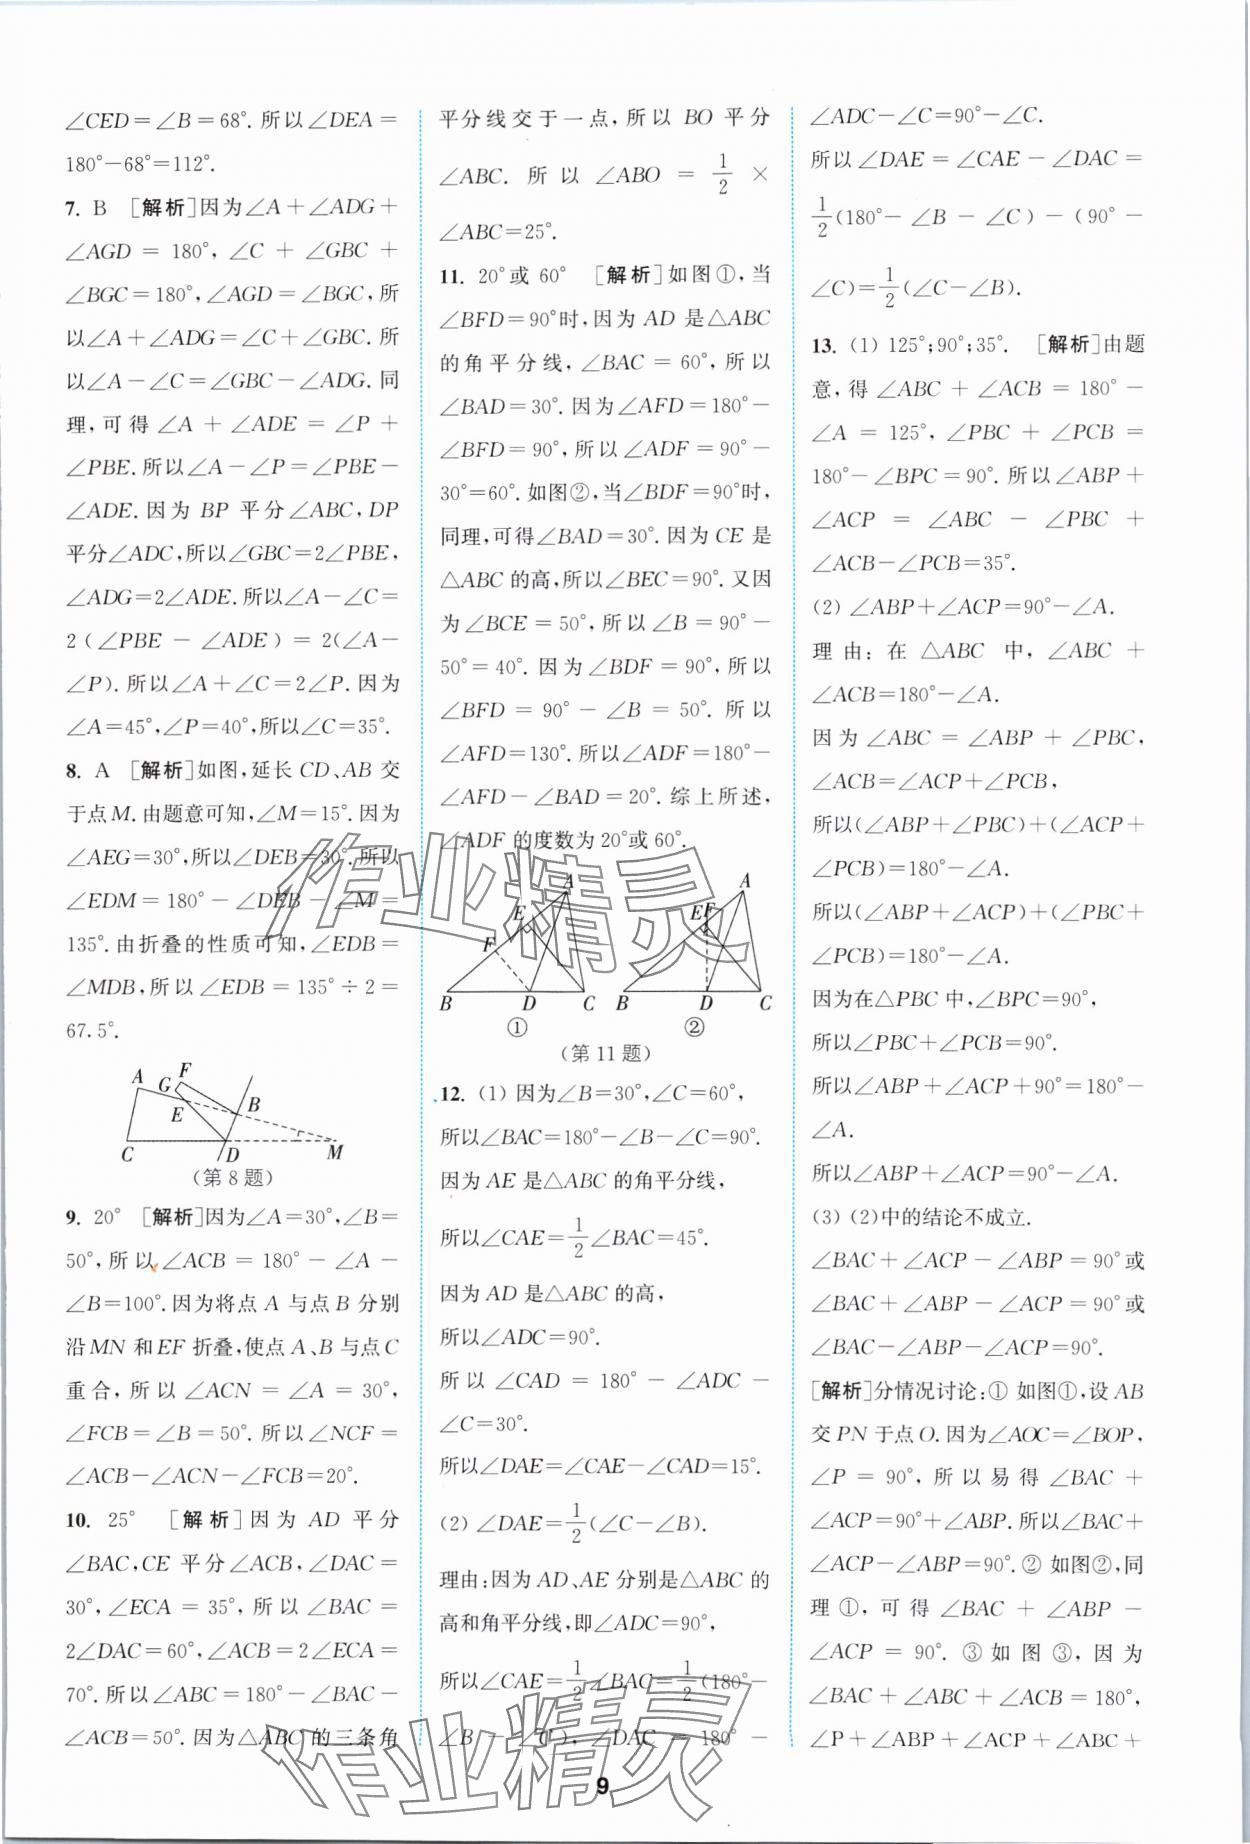 ∠CED=∠B=68°.所以∠DEA=
180°-68°=112°.
7. B [解析]因为∠A+∠ADG+
∠AGD = 180°, ∠C + ∠GBC +
∠BGC=180°,∠AGD=∠BGC,所
以∠A+∠ADG=∠C+∠GBC.所
以∠A-∠C=∠GBC-∠ADG.同
理,可得∠A + ∠ADE = ∠P +
∠PBE.所以∠A-∠P=∠PBE-
∠ADE.因为 BP 平分∠ABC,DP
平分∠ADC,所以∠GBC=2∠PBE,
∠ADG=2∠ADE.所以∠A-∠C=
2(∠PBE - ∠ADE) = 2(∠A-
∠P).所以∠A+∠C=2∠P.因为
∠A=45°,∠P=40°,所以∠C=35°.
8. A [解析]如图,延长 CD、AB 交
于点M.由题意可知,∠M=15°.因为
∠AEG=30°,所以∠DEB=30°.所以
∠EDM = 180° - ∠DEB - ∠M =
135°.由折叠的性质可知,∠EDB=
∠MDB,所以∠EDB = 135° ÷ 2 =
67.5°.
A G F E B C D M
(第 8 题)
9. 20° [解析]因为∠A=30°,∠B=
50°,所以∠ACB = 180° - ∠A -
∠B=100°.因为将点 A 与点 B 分别
沿MN 和EF 折叠,使点A、B与点C
重合,所以∠ACN = ∠A = 30°,
∠FCB=∠B=50°.所以∠NCF=
∠ACB-∠ACN-∠FCB=20°.
10. 25° [解析]因为 AD 平分
∠BAC,CE 平分∠ACB,∠DAC=
30°,∠ECA = 35°,所以∠BAC =
2∠DAC=60°,∠ACB=2∠ECA=
70°.所以∠ABC=180°-∠BAC-
∠ACB=50°.因为△ABC的三条角
平分线交于一点,所以 BO 平分
∠ABC. 所以∠ABO = 1/2 ×
∠ABC=25°.
11. 20°或 60° [解析]如图①,当
∠BFD=90°时,因为 AD 是△ABC
的角平分线,∠BAC = 60°,所以
∠BAD=30°.因为∠AFD=180°-
∠BFD=90°,所以∠ADF = 90°-
30°=60°.如图②,当∠BDF=90°时,
同理,可得∠BAD=30°.因为 CE 是
△ABC 的高,所以∠BEC=90°.又因
为∠BCE = 50°,所以∠B = 90° -
50°= 40°. 因为∠BDF = 90°,所以
∠BFD = 90° - ∠B = 50°. 所以
∠AFD=130°.所以∠ADF=180°-
∠AFD-∠BAD=20°.综上所述,
∠ADF 的度数为 20°或 60°.
A E F B D C ① A EF B D C ②
(第 11 题)
12. (1) 因为∠B=30°,∠C=60°,
所以∠BAC=180°-∠B-∠C=90°.
因为 AE 是△ABC 的角平分线,
所以∠CAE=1/2∠BAC=45°.
因为 AD 是△ABC 的高,
所以∠ADC=90°.
所以∠CAD = 180° - ∠ADC -
∠C=30°.
所以∠DAE=∠CAE-∠CAD=15°.
(2) ∠DAE=1/2(∠C-∠B).
理由:因为AD、AE 分别是△ABC 的
高和角平分线,即∠ADC=90°,
所以∠CAE=1/2∠BAC=1/2(180°-
∠B - ∠C), ∠DAC = 180° -
∠ADC-∠C=90°-∠C.
所以∠DAE=∠CAE-∠DAC=
1/2(180°- ∠B - ∠C) - (90° -
∠C)=1/2(∠C-∠B).
13. (1) 125°;90°;35°. [解析]由题
意,得∠ABC + ∠ACB = 180° -
∠A = 125°, ∠PBC + ∠PCB =
180°-∠BPC=90°.所以∠ABP+
∠ACP = ∠ABC - ∠PBC +
∠ACB-∠PCB=35°.
(2) ∠ABP+∠ACP=90°-∠A.
理由:在△ABC 中,∠ABC +
∠ACB=180°-∠A.
因为∠ABC = ∠ABP + ∠PBC,
∠ACB=∠ACP+∠PCB,
所以(∠ABP+∠PBC)+(∠ACP+
∠PCB)=180°-∠A.
所以(∠ABP+∠ACP)+(∠PBC+
∠PCB)=180°-∠A.
因为在△PBC 中,∠BPC=90°,
所以∠PBC+∠PCB=90°.
所以∠ABP+∠ACP+90°=180°-
∠A.
所以∠ABP+∠ACP=90°-∠A.
(3) (2)中的结论不成立.
∠BAC+∠ACP-∠ABP=90°或
∠BAC+∠ABP-∠ACP=90°或
∠BAC-∠ABP-∠ACP=90°.
[解析]分情况讨论:① 如图①,设 AB
交 PN 于点 O.因为∠AOC=∠BOP,
∠P = 90°,所以易得∠BAC +
∠ACP=90°+∠ABP.所以∠BAC+
∠ACP-∠ABP=90°.② 如图②,同
理①,可得∠BAC + ∠ABP -
∠ACP = 90°. ③ 如图③,因为
∠BAC+∠ABC+∠ACB=180°,
∠P+∠ABP+∠ACP+∠ABC+
作业精灵
作业精灵
9